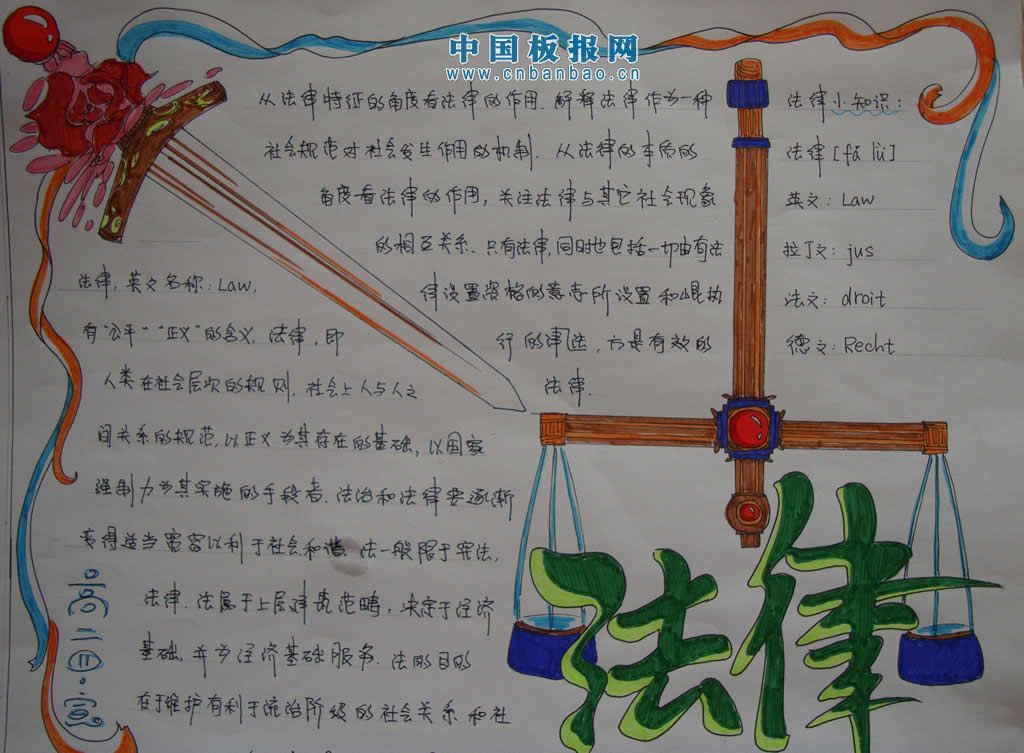 中国板报网
www.cnbanbao.cn
从法律特征的角度看法律的作用.解释法律作为一种
社会规范对社会发生作用的机制.从法律的本质的
角度看法律的作用,关注法律与其它社会现象
的相互关系.只有法律,同时也包括一切由有法
律设置资格的意志所设置和
行的
,方是有效的
法律.
法律小知识:
法律[fǎ lǜ]
英文:Law
拉丁文:jus
法文:droit
德文:Recht
法律,英文名称:Law,
有"公平""正义"的含义,法律,即
人类在社会层次的规则,社会上人与人之
间关系的规范,以正义为其存在的基础,以国家
强制力为其实施的手段者.法治和法律要逐渐
变得适当宽容以利于社会和谐.法一般限于宪法,
法律.法属于上层建筑范畴,决定于经济
基础,并为经济基础服务.法的目的
在于维护有利于统治阶级的社会关系和社
高二
法律